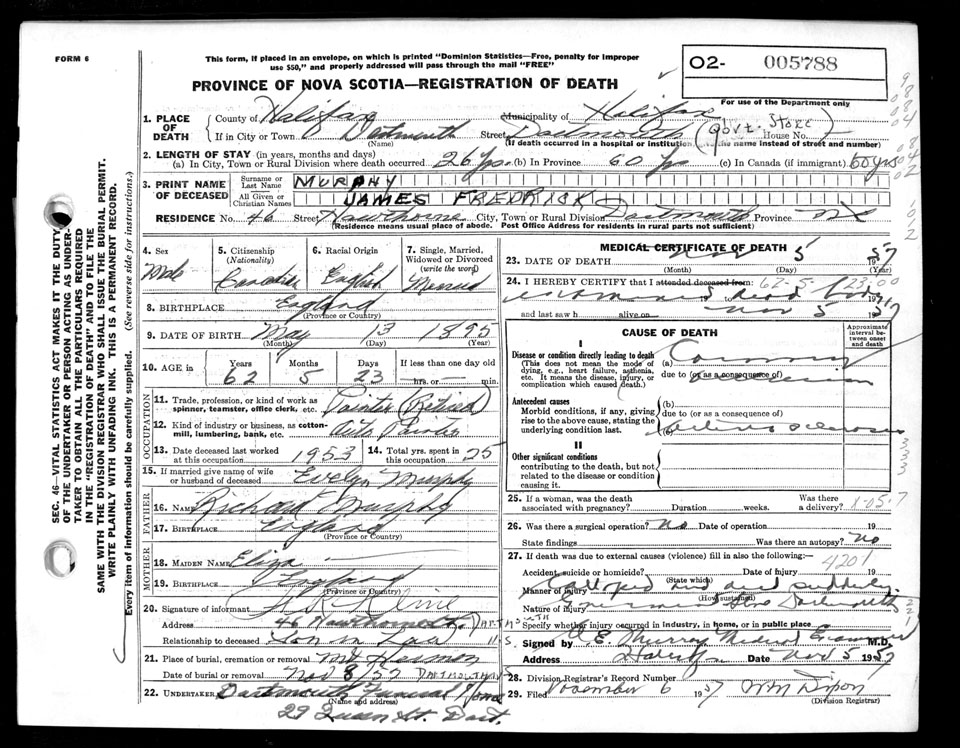 FORM 6
This form, if placed in an envelope, on which is printed "Dominion Statistics—Free, penalty for improper
use $50," and properly addressed will pass through the mail "FREE"
PROVINCE OF NOVA SCOTIA—REGISTRATION OF DEATH
O2- 005788
For use of the Department only
SEC. 46—VITAL STATISTICS ACT MAKES IT THE DUTY
OF THE UNDERTAKER OR PERSON ACTING AS UNDER-
TAKER TO OBTAIN ALL THE PARTICULARS REQUIRED
IN THE "REGISTRATION OF DEATH" AND TO FILE THE
SAME WITH THE DIVISION REGISTRAR WHO SHALL ISSUE THE BURIAL PERMIT.
WRITE PLAINLY WITH UNFADING INK. THIS IS A PERMANENT RECORD.
Every item of information should be carefully supplied. (See reverse side for instructions.)
1. PLACE OF DEATH
County of Halifax Municipality of Halifax
If in City or Town Dartmouth Street Dartmouth (Govt. Store) House No.
(Name) (If death occurred in a hospital or institution, the name instead of street and number)
2. LENGTH OF STAY (in years, months and days)
(a) In City, Town or Rural Division where death occurred 26 yrs. (b) In Province 60 yrs (c) In Canada (if immigrant) 60 yrs
3. PRINT NAME OF DECEASED
Surname or Last Name MURPHY
All Given or Christian Names JAMES FREDRICK
RESIDENCE No. 46 Street Hawthorne City, Town or Rural Division Dartmouth Province NS
(Residence means usual place of abode. Post Office Address for residents in rural parts not sufficient)
4. Sex Male
5. Citizenship (Nationality) Canadian
6. Racial Origin English
7. Single, Married, Widowed or Divorced (write the word) Married
8. BIRTHPLACE England
(Province or Country)
9. DATE OF BIRTH May 13 1895
(Month) (Day) (Year)
10. AGE in Years 62 Months 5 Days 23 If less than one day old hrs. or min.
OCCUPATION
11. Trade, profession, or kind of work as spinner, teamster, office clerk, etc. Painter (Retired)
12. Kind of industry or business, as cotton-mill, lumbering, bank, etc. Painter
13. Date deceased last worked at this occupation 1953
14. Total yrs. spent in this occupation 25
15. If married give name of wife or husband of deceased Evelyn Murphy
FATHER
16. NAME Richard Murphy
17. BIRTHPLACE England
(Province or Country)
MOTHER
18. MAIDEN NAME Eliza —
19. BIRTHPLACE England
(Province or Country)
20. Signature of informant
Address 46 Hawthorne St. DARTMOUTH N.S.
Relationship to deceased Son in Law
21. Place of burial, cremation or removal Mt Hermon
Date of burial or removal Nov 8/57 DARTMOUTH
22. UNDERTAKER Dartmouth Funeral Home
(Name and address)
29 Queen St. Dart.
MEDICAL CERTIFICATE OF DEATH
23. DATE OF DEATH Nov 5 1957
(Month) (Day) (Year)
24. I HEREBY CERTIFY that I attended deceased from: 62-5-23.00
examined dead body
and last saw h alive on Nov 5 1957
CAUSE OF DEATH
Approximate interval between onset and death
I
Disease or condition directly leading to death
(This does not mean the mode of dying, e.g., heart failure, asthenia, etc. It means the disease, injury, or complication which caused death.)
(a) Coronary
due to (or as a consequence of)
Antecedent causes
Morbid conditions, if any, giving rise to the above cause, stating the underlying condition last.
(b)
due to (or as a consequence of)
(c) Arterio sclerosis
II
Other significant conditions
contributing to the death, but not related to the disease or condition causing it.
25. If a woman, was the death associated with pregnancy? Duration weeks. Was there a delivery?
26. Was there a surgical operation? No Date of operation 19
State findings Was there an autopsy? No
27. If death was due to external causes (violence) fill in also the following: 4201
Accident, suicide or homicide? Date of injury 19
(State which)
Manner of injury Collapsed and died suddenly
(How sustained)
Nature of injury Government Store Dartmouth
Specify whether injury occurred in industry, in home, or in public place
Signed by E. Murray Medical Examiner M.D.
Address Halifax Date Nov 5 1957
28. Division Registrar's Record Number
29. Filed November 6 1957 Dixon
(Division Registrar)